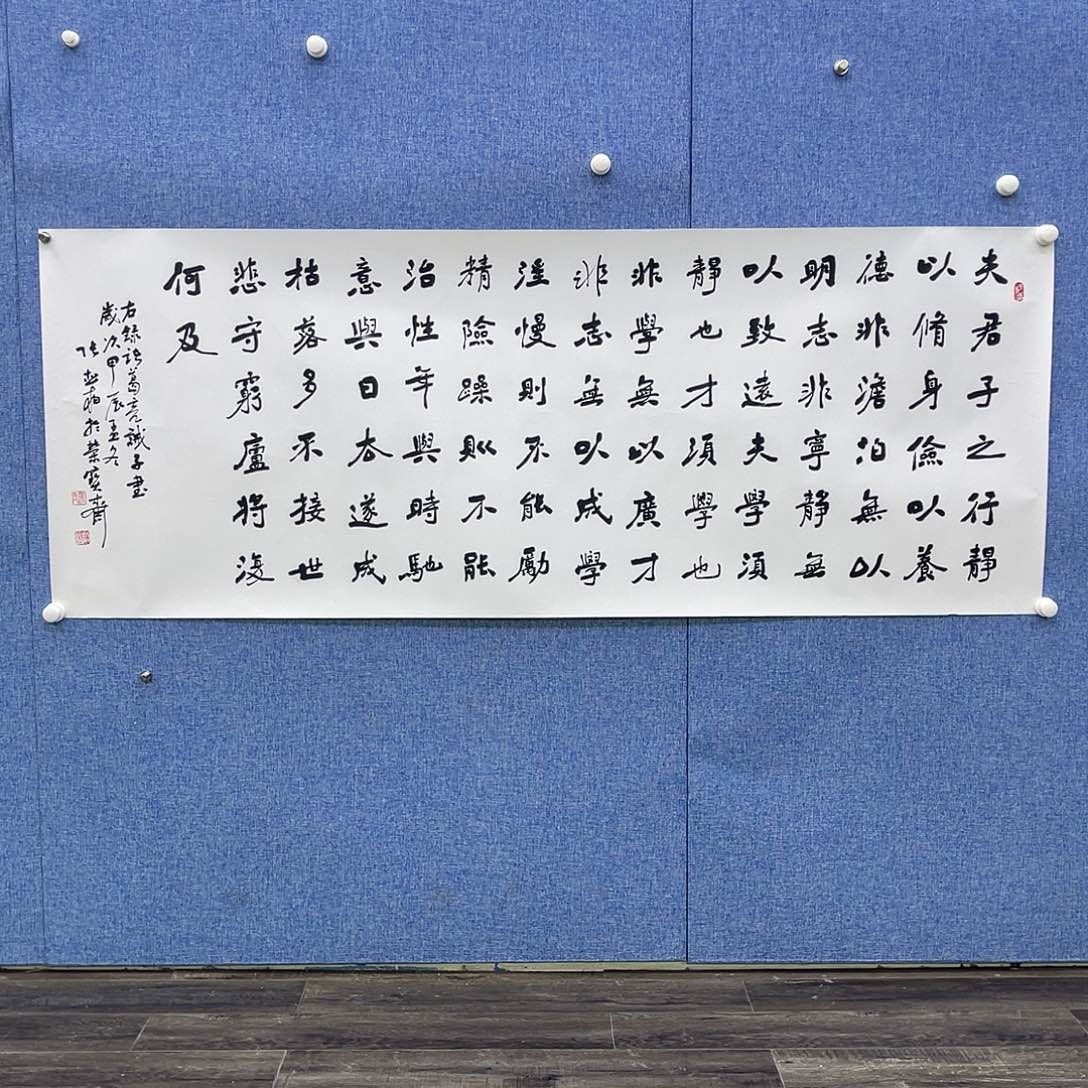 夫君子之行靜
以脩身儉以養
德非澹泊無以
明志非寧靜無
以致遠夫學須
靜也才須學也
非學無以廣才
非志無以成學
淫慢則不能勵
精險躁則不能
治性年與時馳
意與日去遂成
枯落多不接世
悲守窮廬將復
何及
右錄諸葛亮誡子書
歲次甲辰孟冬
於榮寶齋